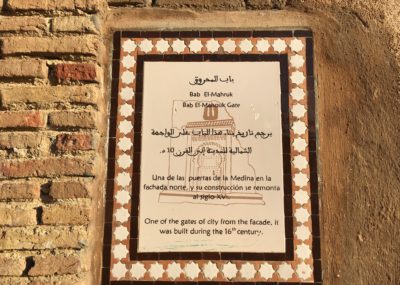 باب المحروق
Bab El-Mahruk
Bab El-Mahouk Gate
يرجع تاريخ بناء هذا الباب على الواجهة
الشمالية للمدينة إلى القرن 10 ه.
Una de las puertas de la Medina en la
fachada norte, y su construcción se remonta
al siglo XV.
One of the gates of city from the facade, it
was built during the 16th century.